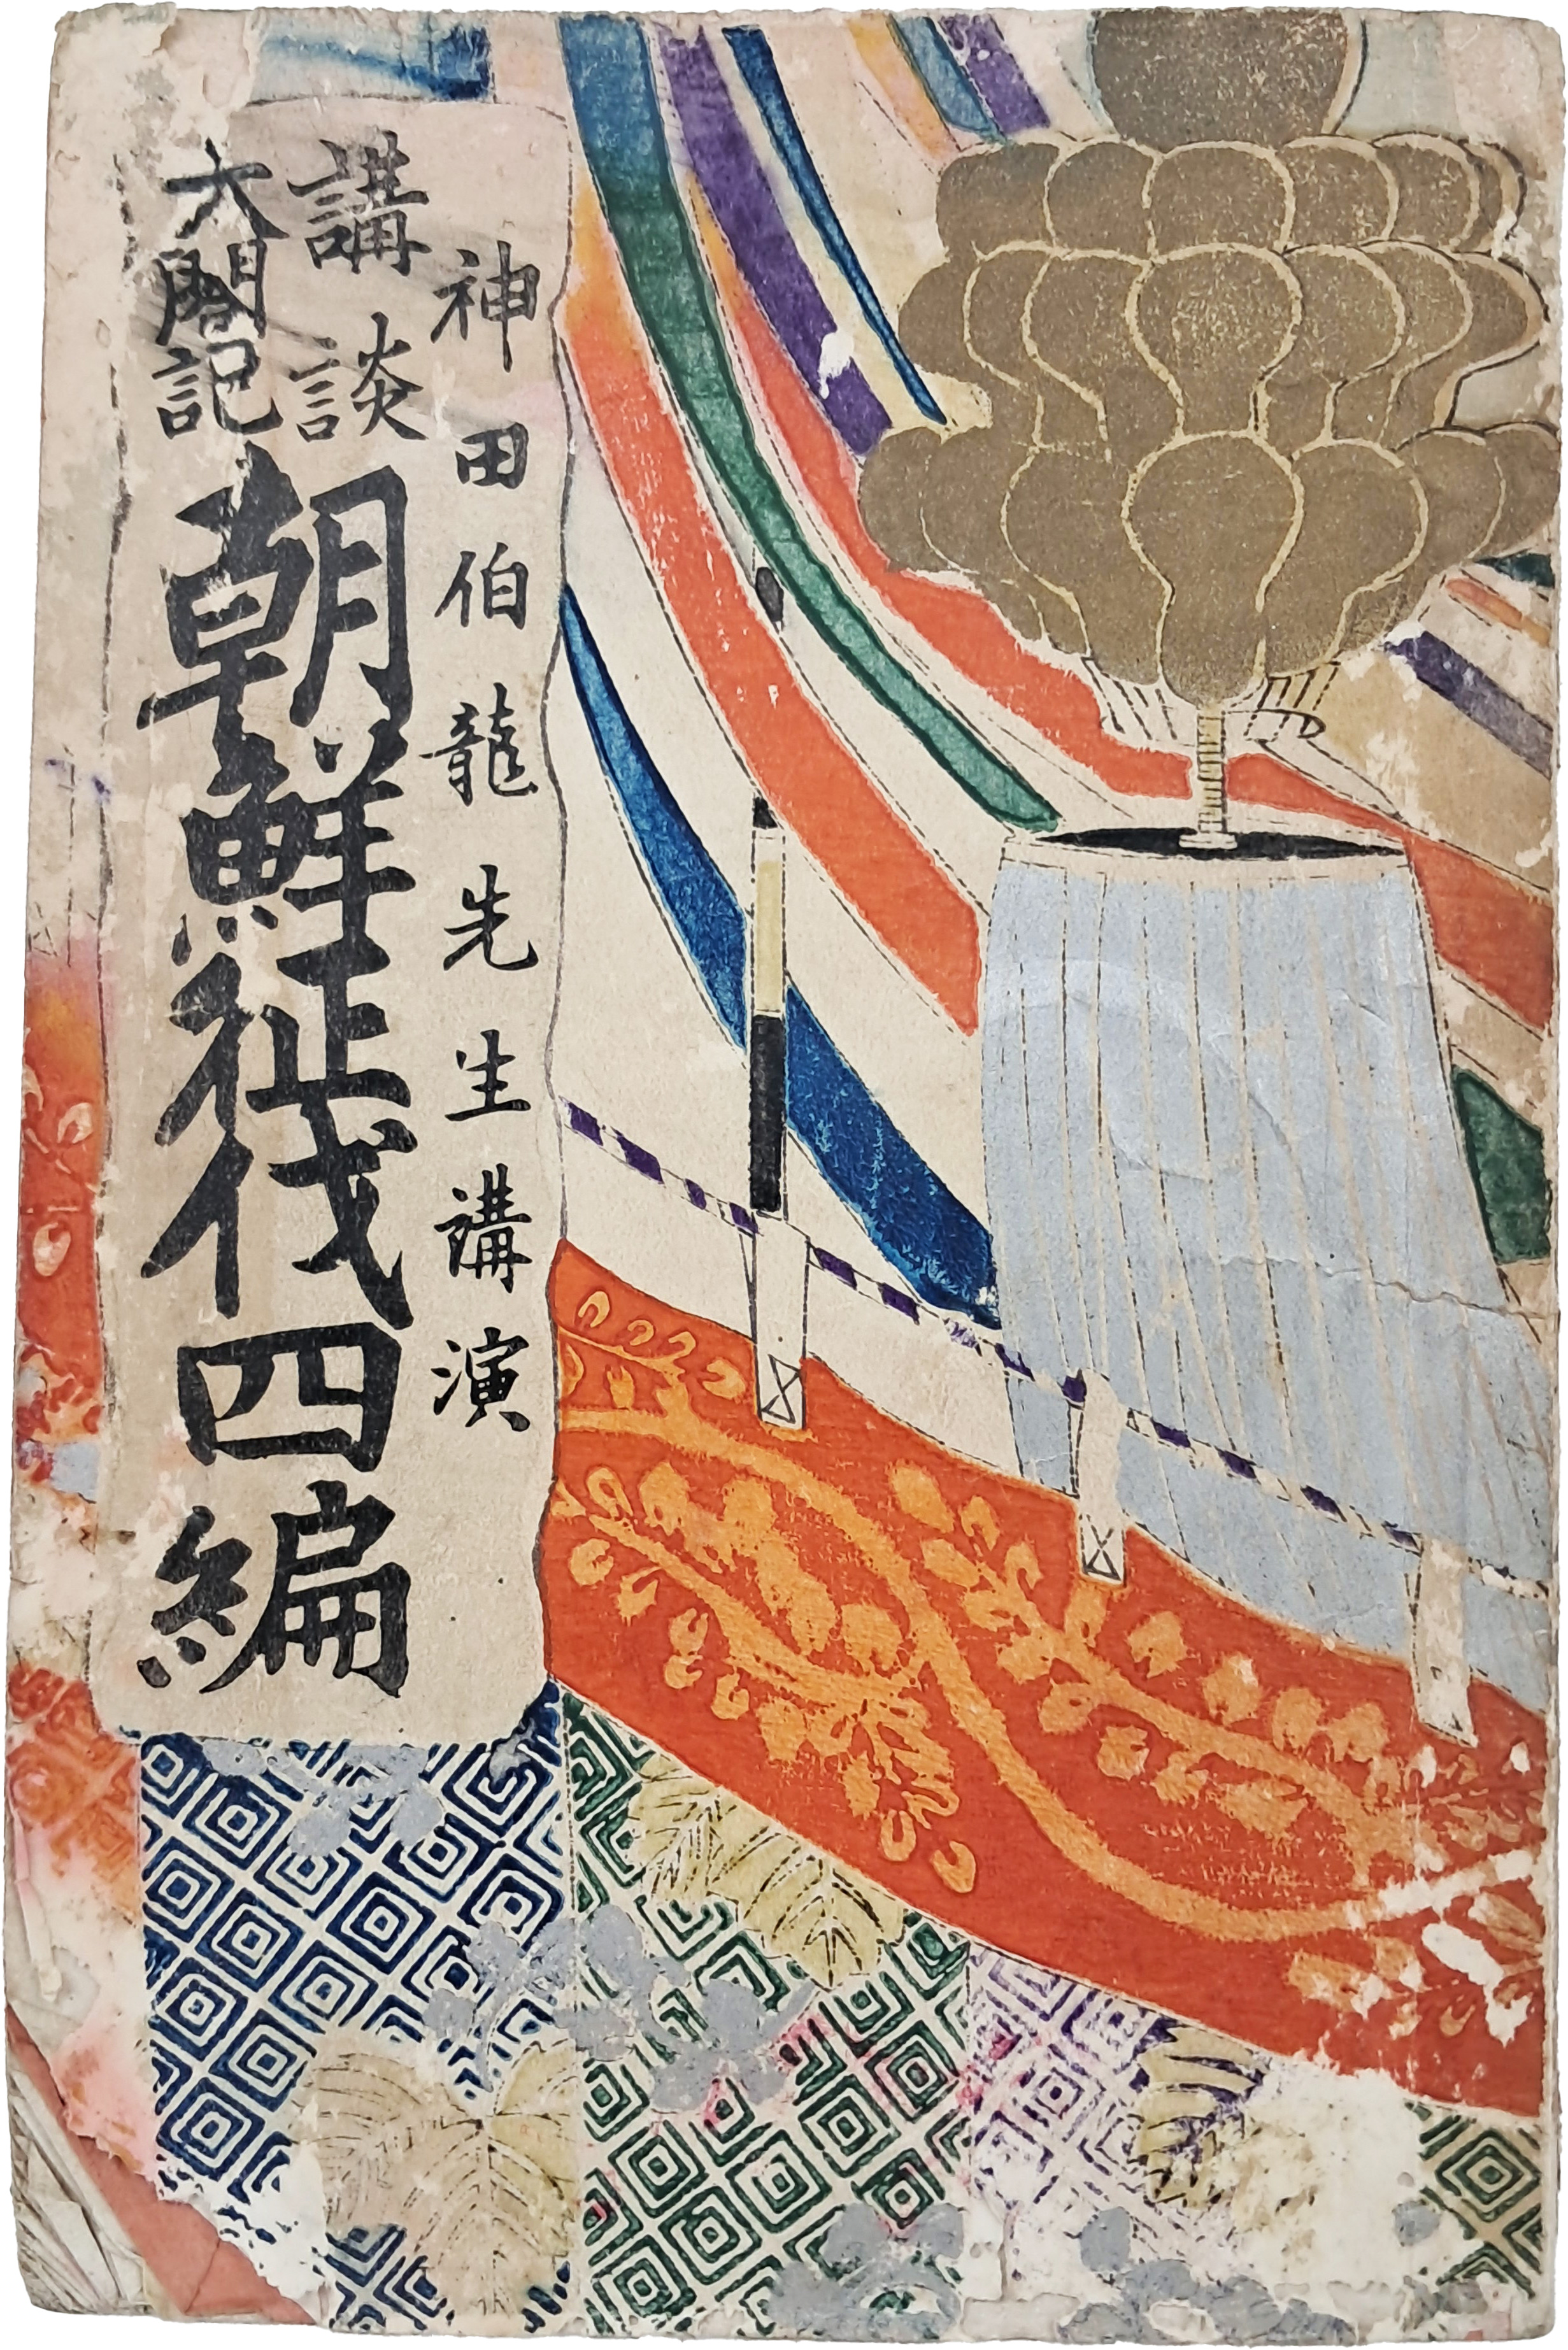 神田伯龍先生講演
講談
太閤記
朝鮮征伐四編